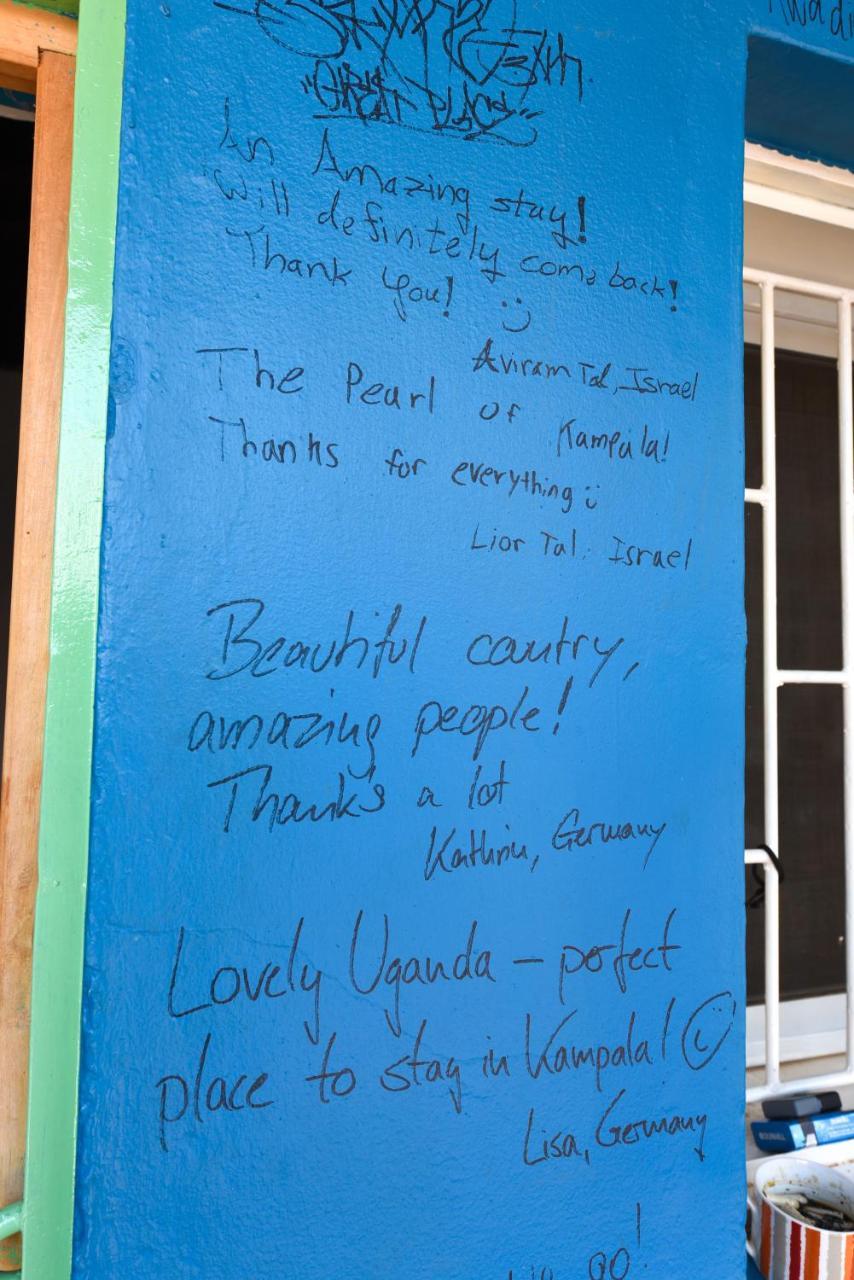 "GREAT PLACE"
An Amazing stay!
Will definitely come back!
Thank you! :)
Aviram Tal, Israel
The Pearl of Kampala!
Thanks for everything :)
Lior Tal. Israel
Beautiful country,
amazing people!
Thanks a lot
Kathrin, Germany
Lovely Uganda – perfect
place to stay in Kampala!
Lisa, Germany
go!